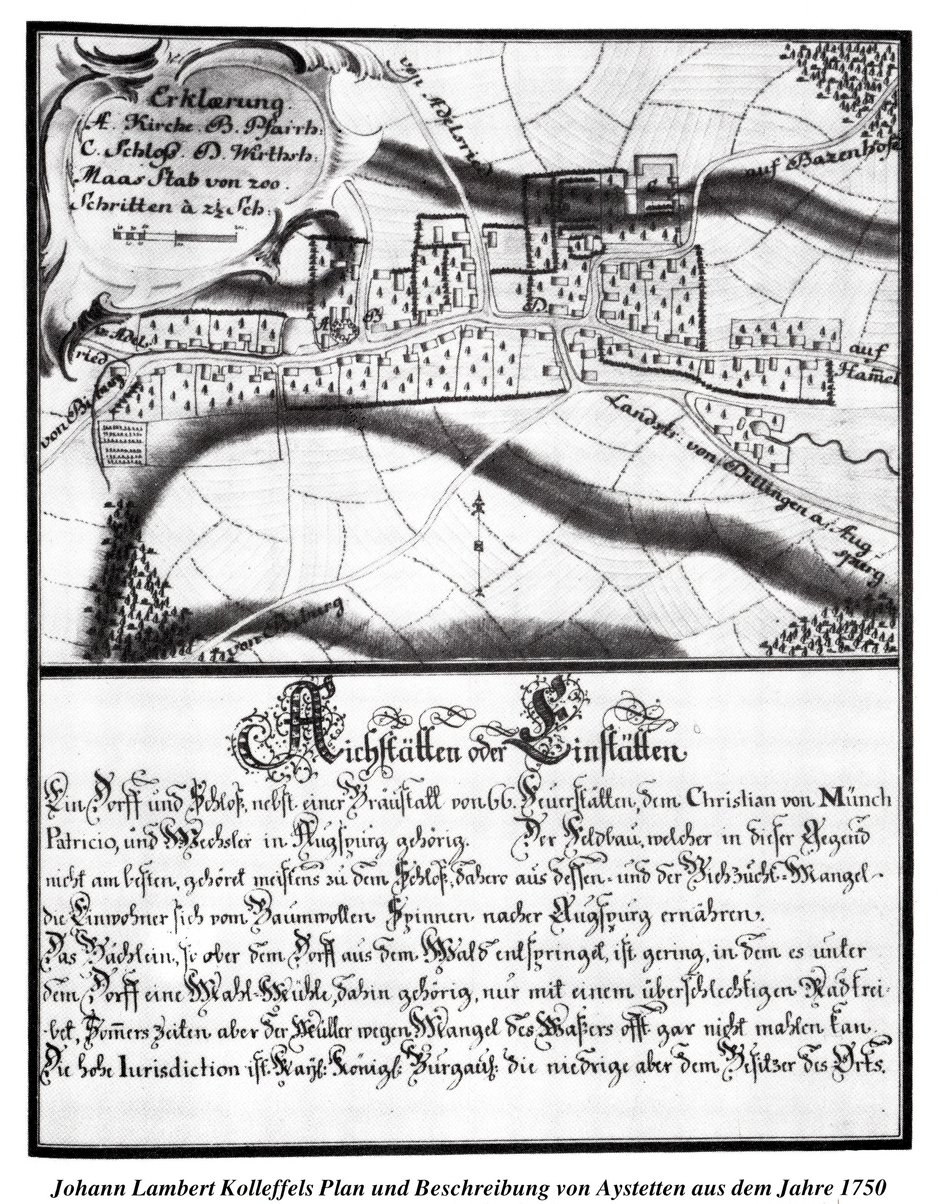 Erklærung.
Æ. Kirche. B. Pfairh:
C. Schloß. D. Wirthsh:
Maas Stab von 200.
Schritten à 2½ Sch:
von Adelsried
auf Bazenhofe
A
B
C
D
v: Adel
ried
von Biburg
auf
Ham̄el
Landstr: von Dillingen a: Aug
spurg
von Biburg
Aichstätten oder Einstätten
Ein Dorff und Schloß, nebst einer Bräustatt von 66. Feuerstätten, dem Christian von Münch
Patricio, und Wechsler in Augspurg gehörig. Der Feldbau, welcher in dieser Gegend
nicht am besten, gehöret meistens zu dem Schloß, dahero aus dessen- und der Viehzucht-Mangel-
die Einwohner sich vom Baumwollen Spinnen nacher Augspurg ernähren.
Das Bächlein, so ober dem Dorff aus dem Wald entspringet, ist gering, in dem es unter
dem Dorff eine Mahl-Mühle, dahin gehörig, nur mit einem überschlechtigen Rad trei-
-bet, Som̄ers Zeiten aber der Müller wegen Mangel des Waßers offt gar nicht mahlen kan.
Die hohe Iurisdiction ist Kaÿs: Königl: Burgauis: die niedrige aber dem Besitzer des Orts.
Johann Lambert Kolleffels Plan und Beschreibung von Aystetten aus dem Jahre 1750